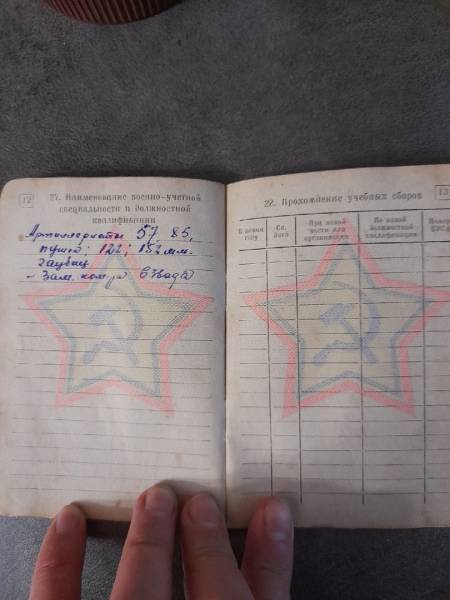 12
27. Наименование военно-учетной
специальности и должностной
квалификации
Артиллеристы 57, 85,
пушки; 122; 152 мм.
гаубиц
– Зам. команд. взвода
13
22. Прохождение учебных сборов
В каком
году
При какой
части или
организации
По какой
должностной
квалификации